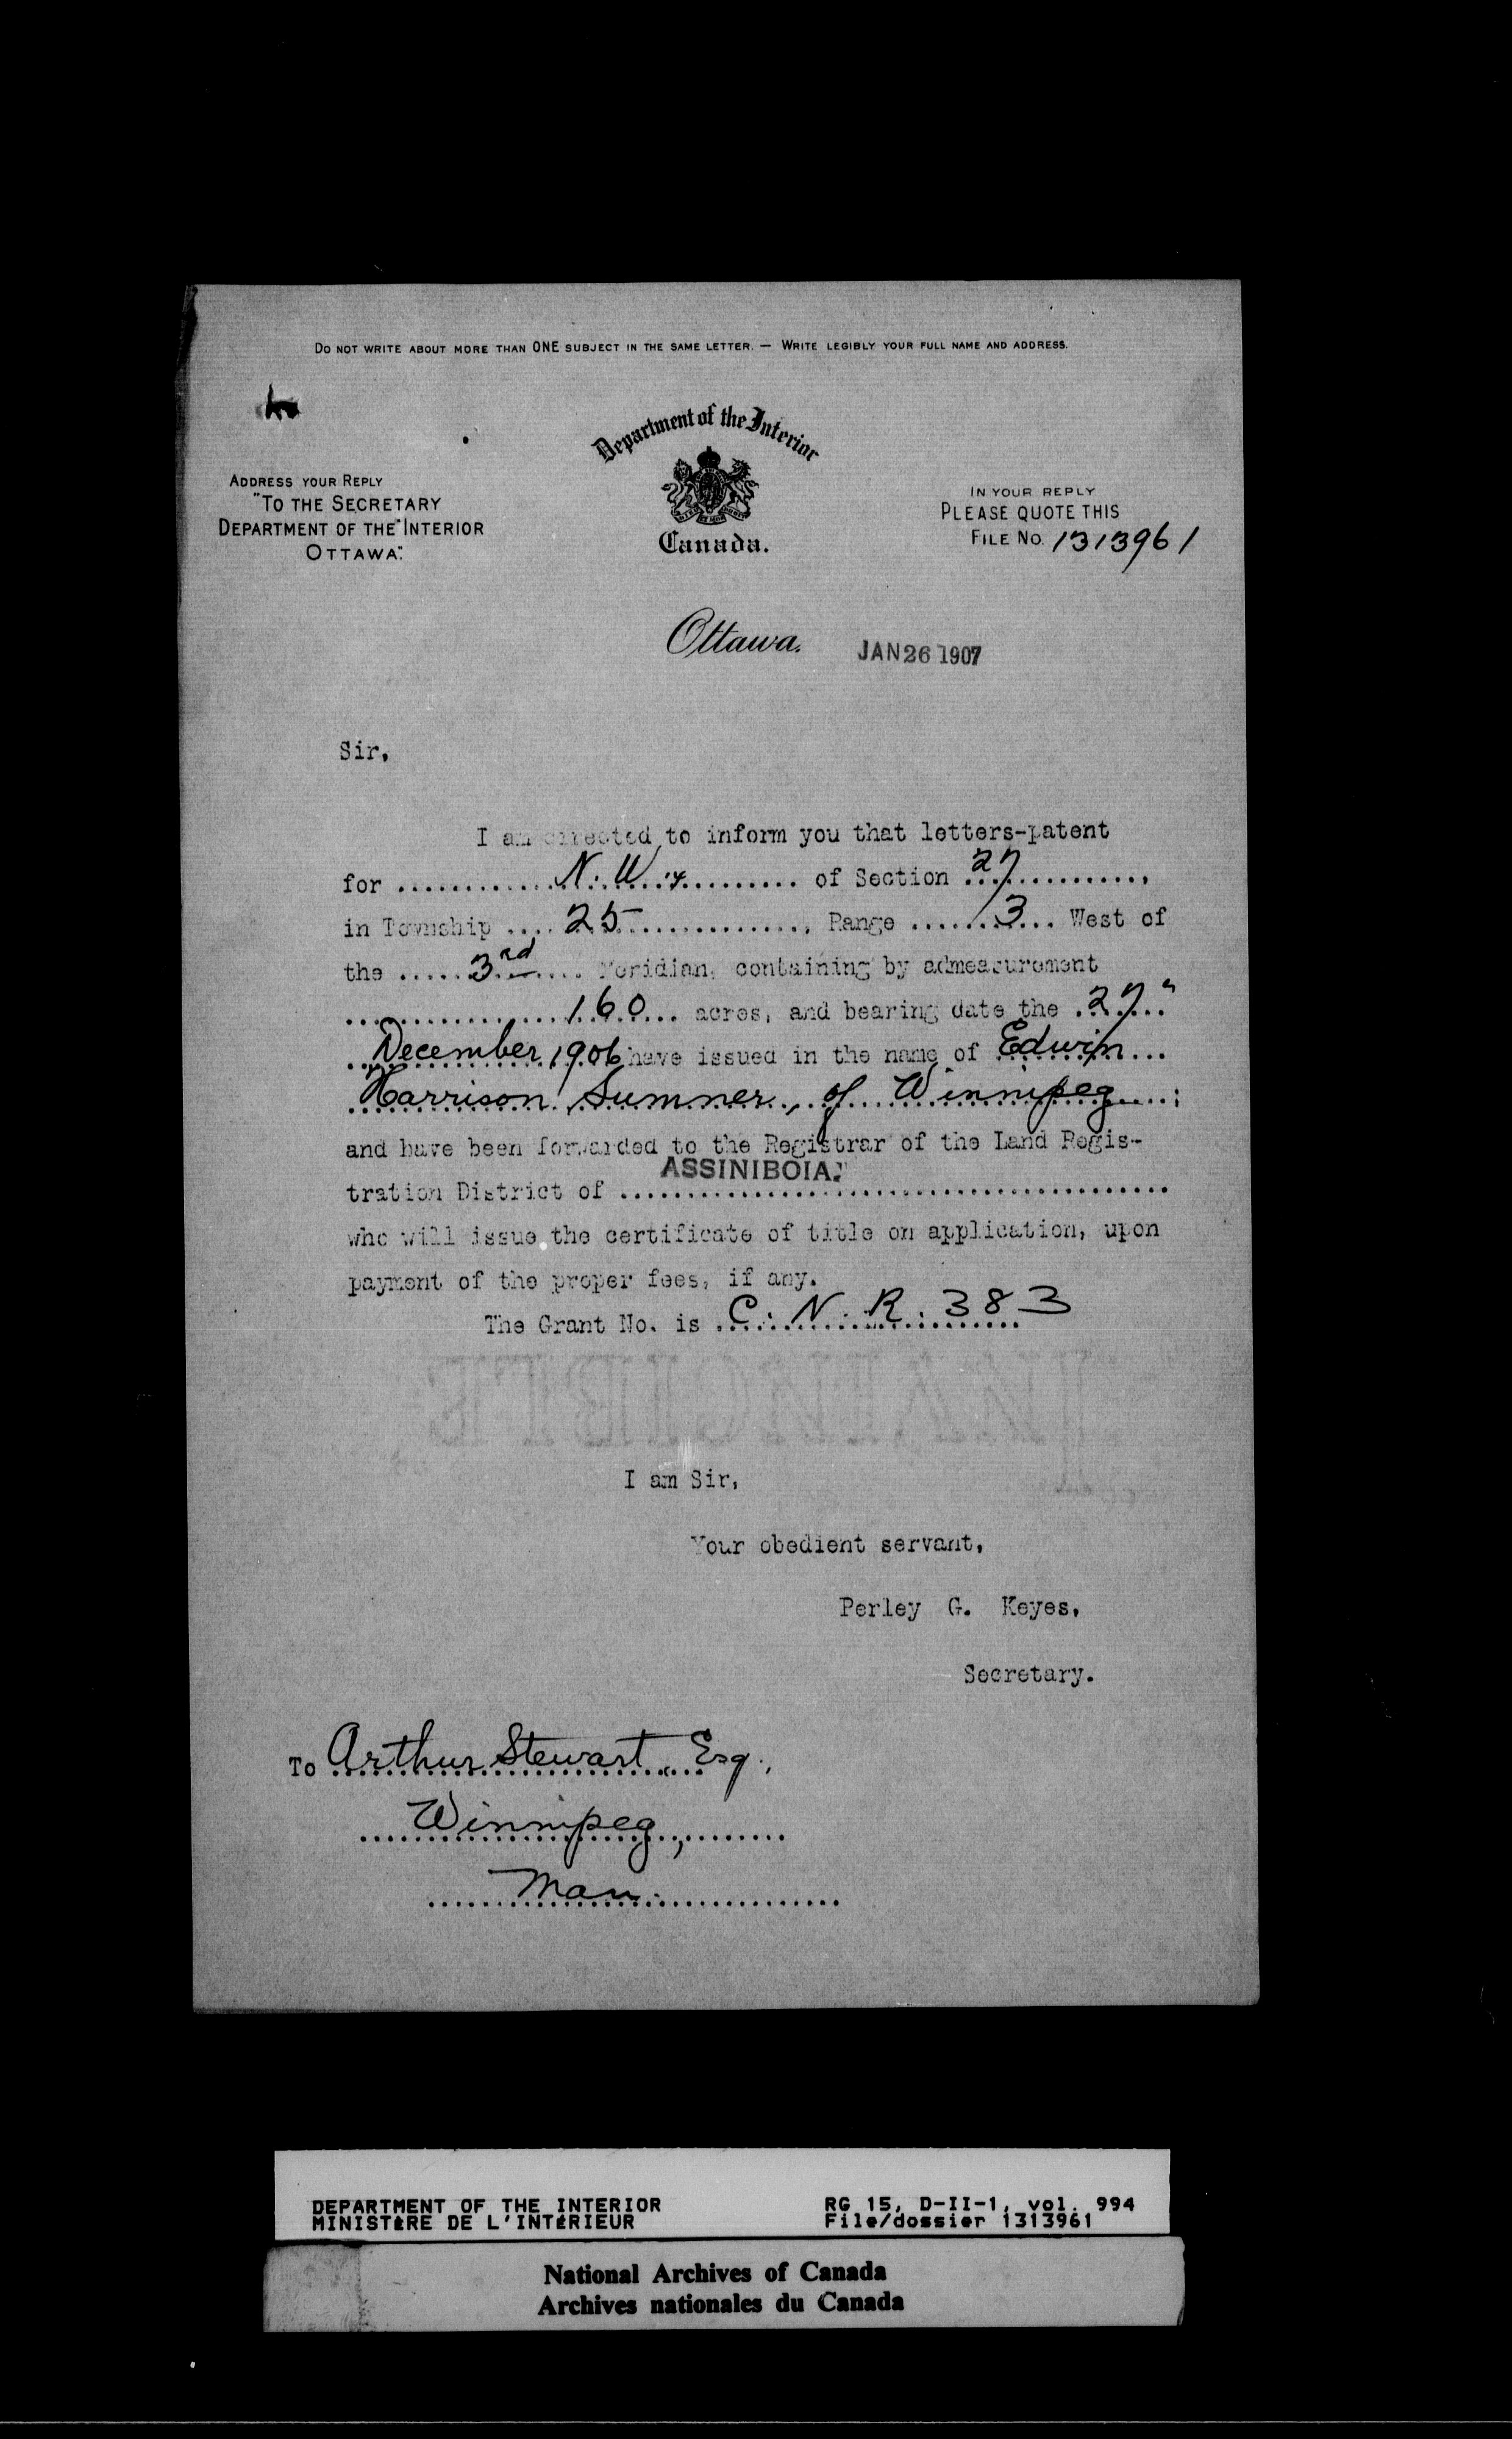 DO NOT WRITE ABOUT MORE THAN ONE SUBJECT IN THE SAME LETTER. — WRITE LEGIBLY YOUR FULL NAME AND ADDRESS.
Department of the Interior
Canada.
ADDRESS YOUR REPLY
"TO THE SECRETARY
DEPARTMENT OF THE INTERIOR
OTTAWA."
IN YOUR REPLY
PLEASE QUOTE THIS
FILE No. 1313961
Ottawa. JAN 26 1907
Sir,
I am directed to inform you that letters-patent
for ............ N.W. ¼ .......... of Section 27 ............,
in Township .... 25 .............., Range ...... 3 ... West of
the ..... 3rd .... Meridian, containing by admeasurement
................ 160 ... acres, and bearing date the .27."
December 1906 have issued in the name of Edwin...
Harrison Sumner, of Winnipeg ....;
and have been forwarded to the Registrar of the Land Regis-
ASSINIBOIA.
tration District of ........................................
who will issue the certificate of title on application, upon
payment of the proper fees, if any.
The Grant No. is C. N. R. 383
INVINCIBLE
I am Sir,
Your obedient servant,
Perley G. Keyes,
Secretary.
To Arthur Stewart, Esq.,
Winnipeg,
Man.
DEPARTMENT OF THE INTERIOR
MINISTÈRE DE L'INTÉRIEUR
RG 15, D-II-1, vol. 994
File/dossier 1313961
National Archives of Canada
Archives nationales du Canada